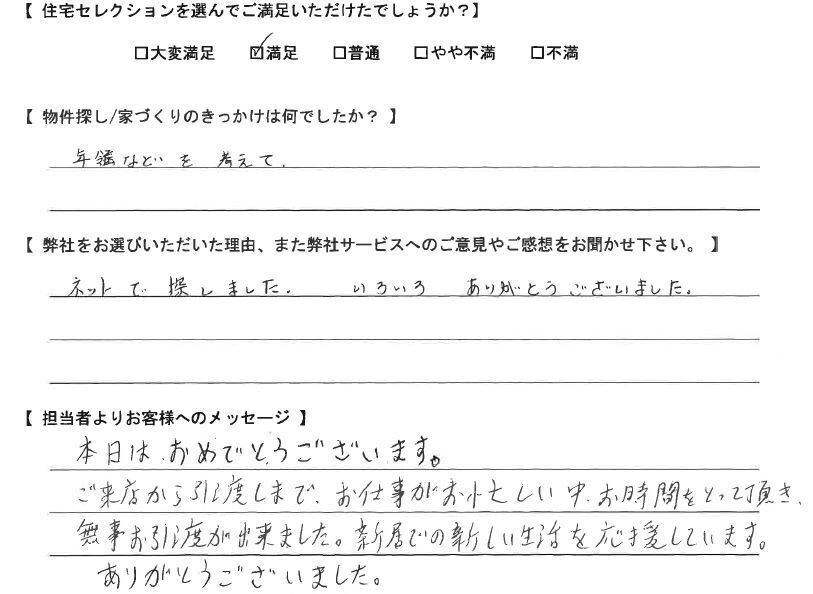 【 住宅セレクションを選んでご満足いただけたでしょうか？】
□大変満足 ☑満足 □普通 □やや不満 □不満
【 物件探し/家づくりのきっかけは何でしたか？ 】
年齢などを 考えて.
【 弊社をお選びいただいた理由、また弊社サービスへのご意見やご感想をお聞かせ下さい。 】
ネットで 探しました. いろいろ ありがとうございました。
【 担当者よりお客様へのメッセージ 】
本日は、おめでとうございます。
ご来店から引渡しまで、お仕事がお忙しい中、お時間をとって頂き、
無事お引渡が出来ました。新居での新しい生活を応援しています。
ありがとうございました。